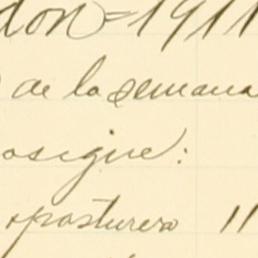 don = 1911
de la semana
osigue:
posturero 11